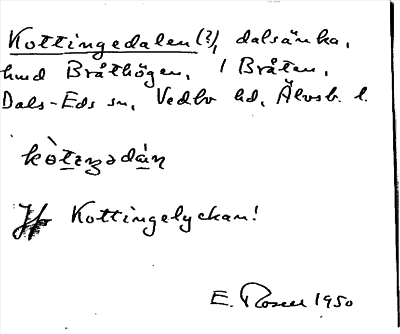 Kottingedalen(?), dalsänka,
hmd Bråthögen, 1 Bråten,
Dals-Eds sn, Vedbo hd, Älvsb. l.
kòtingədàn
Jfr Kottingelyckan!
E. Rosell 1950